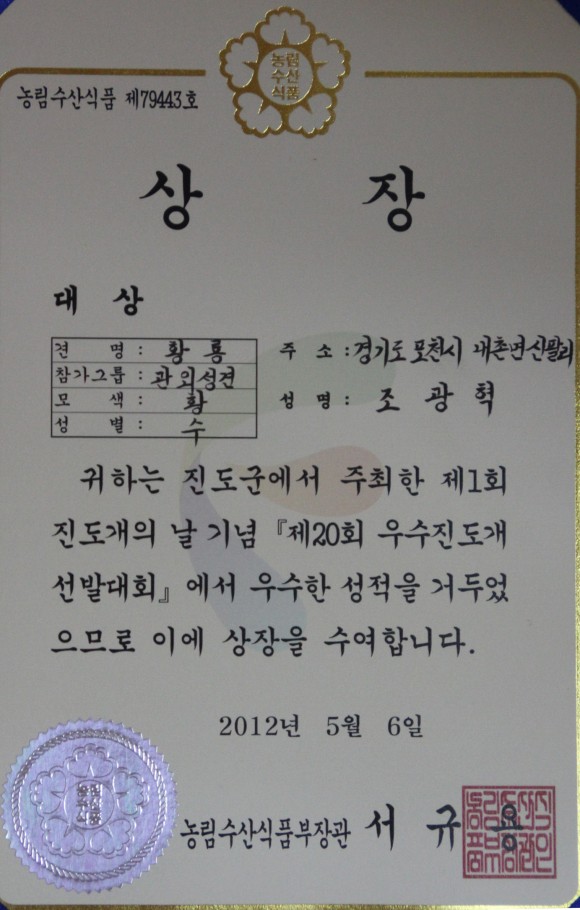 농림
수산
식품
농림수산식품 제79443호
상 장
대 상
견 명 : 황 룡
참가그룹 : 관외성견
모 색 : 황
성 별 : 수
주 소 : 경기도 포천시 내촌면 신팔리
성 명 : 조 광 혁
귀하는 진도군에서 주최한 제1회
진도개의 날 기념 『제20회 우수진도개
선발대회』에서 우수한 성적을 거두었
으므로 이에 상장을 수여합니다.
2012년 5월 6일
농림
수산
식품
농림수산식품부장관 서 규 용